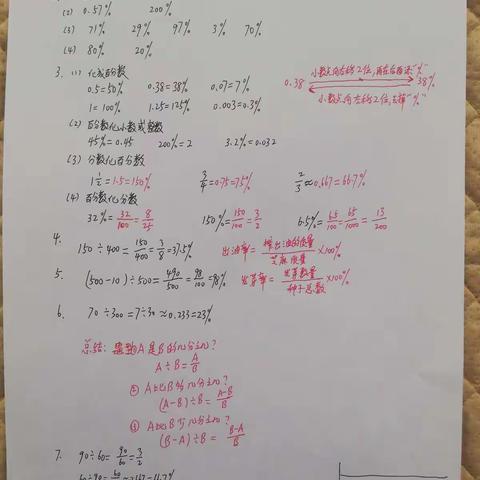 (2) 0.57% 200%
(3) 71% 29% 97% 3% 70%
(4) 80% 20%
3. (1) 化成百分数
0.5=50% 0.38=38% 0.07=7%
1=100% 1.25=125% 0.003=0.3%
小数点向右移2位,再在后面添"%"
0.38 38%
小数点向左移2位,去掉"%"
(2) 百分数化小数或整数
45%=0.45 200%=2 3.2%=0.032
(3) 分数化百分数
1 1/2=1.5=150% 3/4=0.75=75% 2/3≈0.667=66.7%
(4) 百分数化分数
32%=32/100=8/25 150%=150/100=3/2 6.5%=6.5/100=65/1000=13/200
4. 150÷400=150/400=3/8=37.5% 出油率=榨出油的质量/芝麻质量×100%
5. (500-10)÷500=490/500=98/100=98% 发芽率=发芽数量/种子总数×100%
6. 70÷300=7÷30≈0.233=23%
总结: A是B的几分之几?
A÷B=A/B
② A比B多几分之几?
(A-B)÷B=A-B/B
③ A比B少几分之几?
(B-A)÷B=B-A/B
7. 90÷60=90/60=3/2